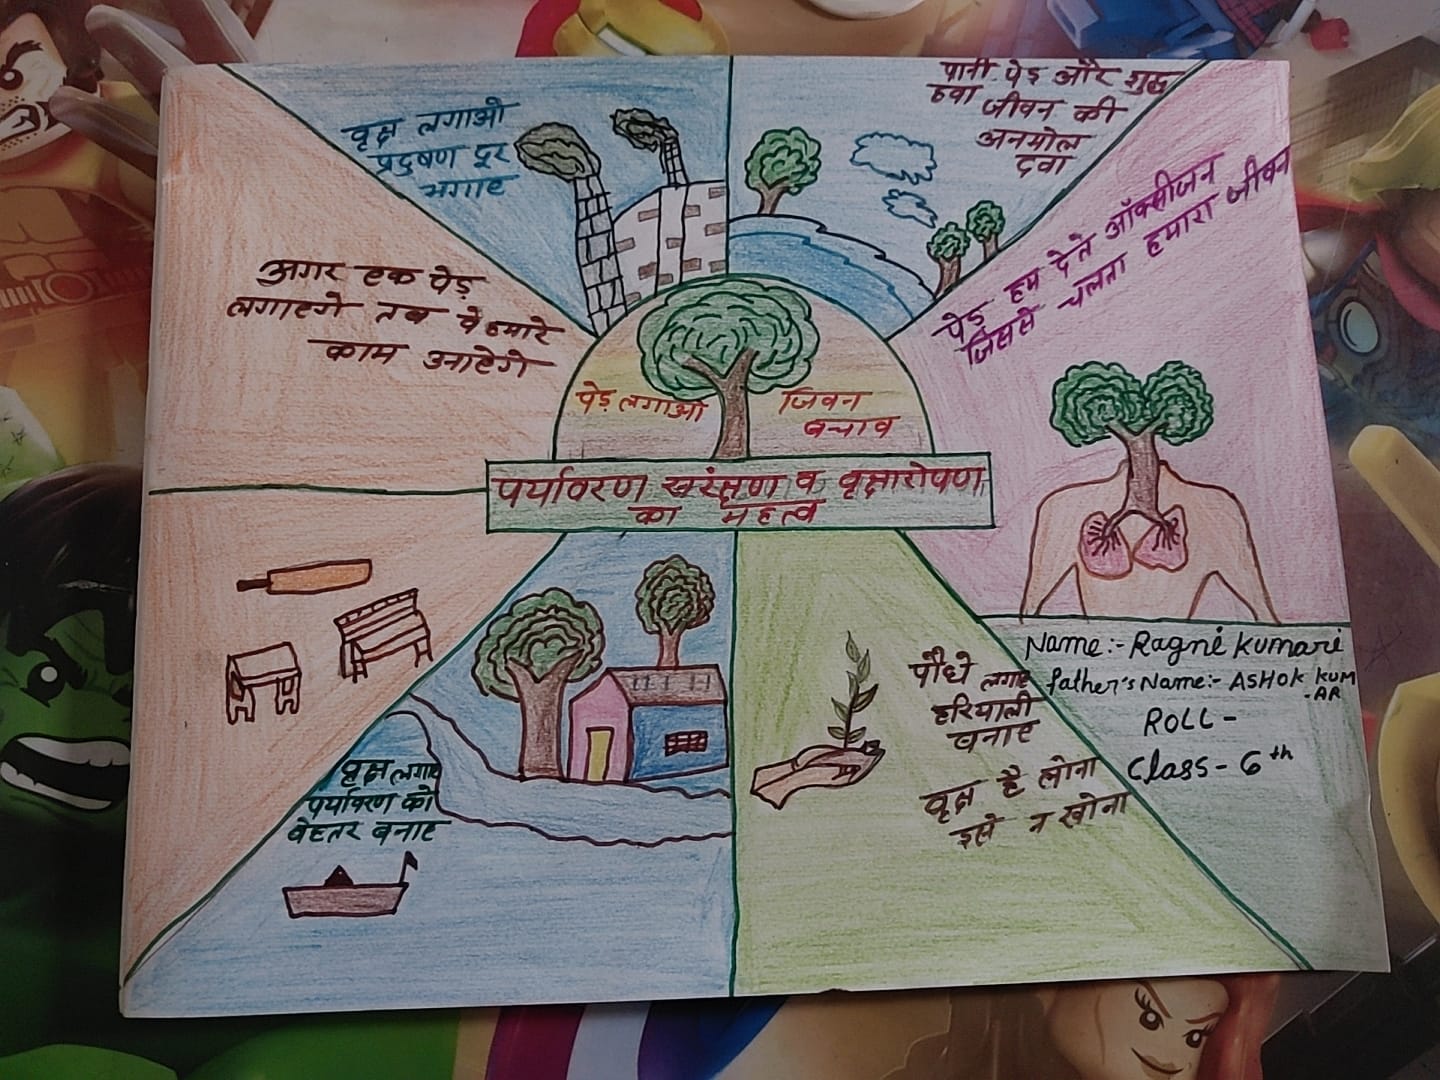 वृक्ष लगाओ
प्रदुषण दूर
भगाए
पानी पेड़ और शुद्ध
हवा जीवन की
अनमोल
दवा
पेड़ हम देते ऑक्सीजन
जिससे चलता हमारा जीवन
अगर एक पेड़
लगाएगे तब वे हमारे
काम आऐगे
पेड़ लगाओ
जिवन
बचाव
पर्यावरण संरक्षण व वृक्षारोपण
का महत्व
Name:- Ragni Kumari
father's Name:- ASHOK KUM
-AR
ROLL-
Class- 6th
पौधे लगाए
हरियाली
बनाए
वृक्ष है सोना
इसे न खोना
वृक्ष लगाए
पर्यावरण को
बेहतर बनाए